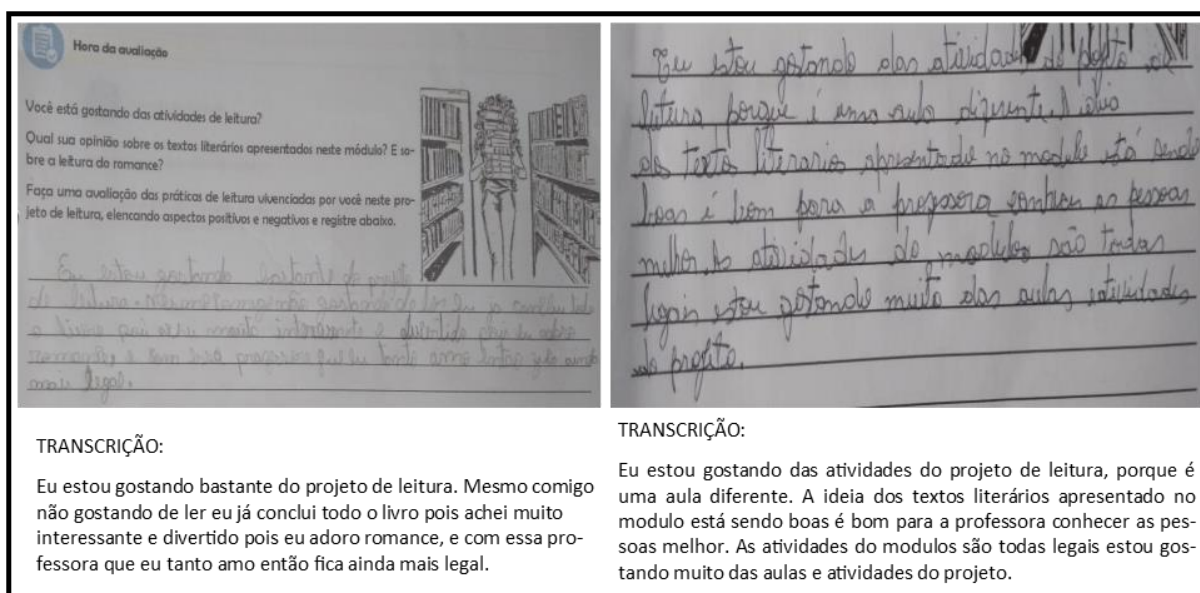 Hora da avaliação
Você está gostando das atividades de leitura?
Qual sua opinião sobre os textos literários apresentados neste módulo? E so-
bre a leitura do romance?
Faça uma avaliação das práticas de leitura vivenciadas por você neste pro-
jeto de leitura, elencando aspectos positivos e negativos e registre abaixo.
Eu estou gostando bastante do projeto
de leitura. Mesmo comigo não gostando de ler eu já conclui todo
o livro pois achei muito interesante e divertido pois eu adoro
romance, e com essa professora que eu tanto amo então fica ainda
mais legal.
TRANSCRIÇÃO:
Eu estou gostando bastante do projeto de leitura. Mesmo comigo
não gostando de ler eu já conclui todo o livro pois achei muito
interessante e divertido pois eu adoro romance, e com essa pro-
fessora que eu tanto amo então fica ainda mais legal.
Eu estou gostando das atividades do projeto de
leitura porque é uma aula diferente. A ideia
do texto literario apresentado no modulo está sendo
boas é bom para a professora conhecer as pessoas
melhor. As atividades do modulos são todas
legais estou gostando muito das aulas e atividades
do projeto.
TRANSCRIÇÃO:
Eu estou gostando das atividades do projeto de leitura, porque é
uma aula diferente. A ideia dos textos literários apresentado no
modulo está sendo boas é bom para a professora conhecer as pes-
soas melhor. As atividades do modulos são todas legais estou gos-
tando muito das aulas e atividades do projeto.